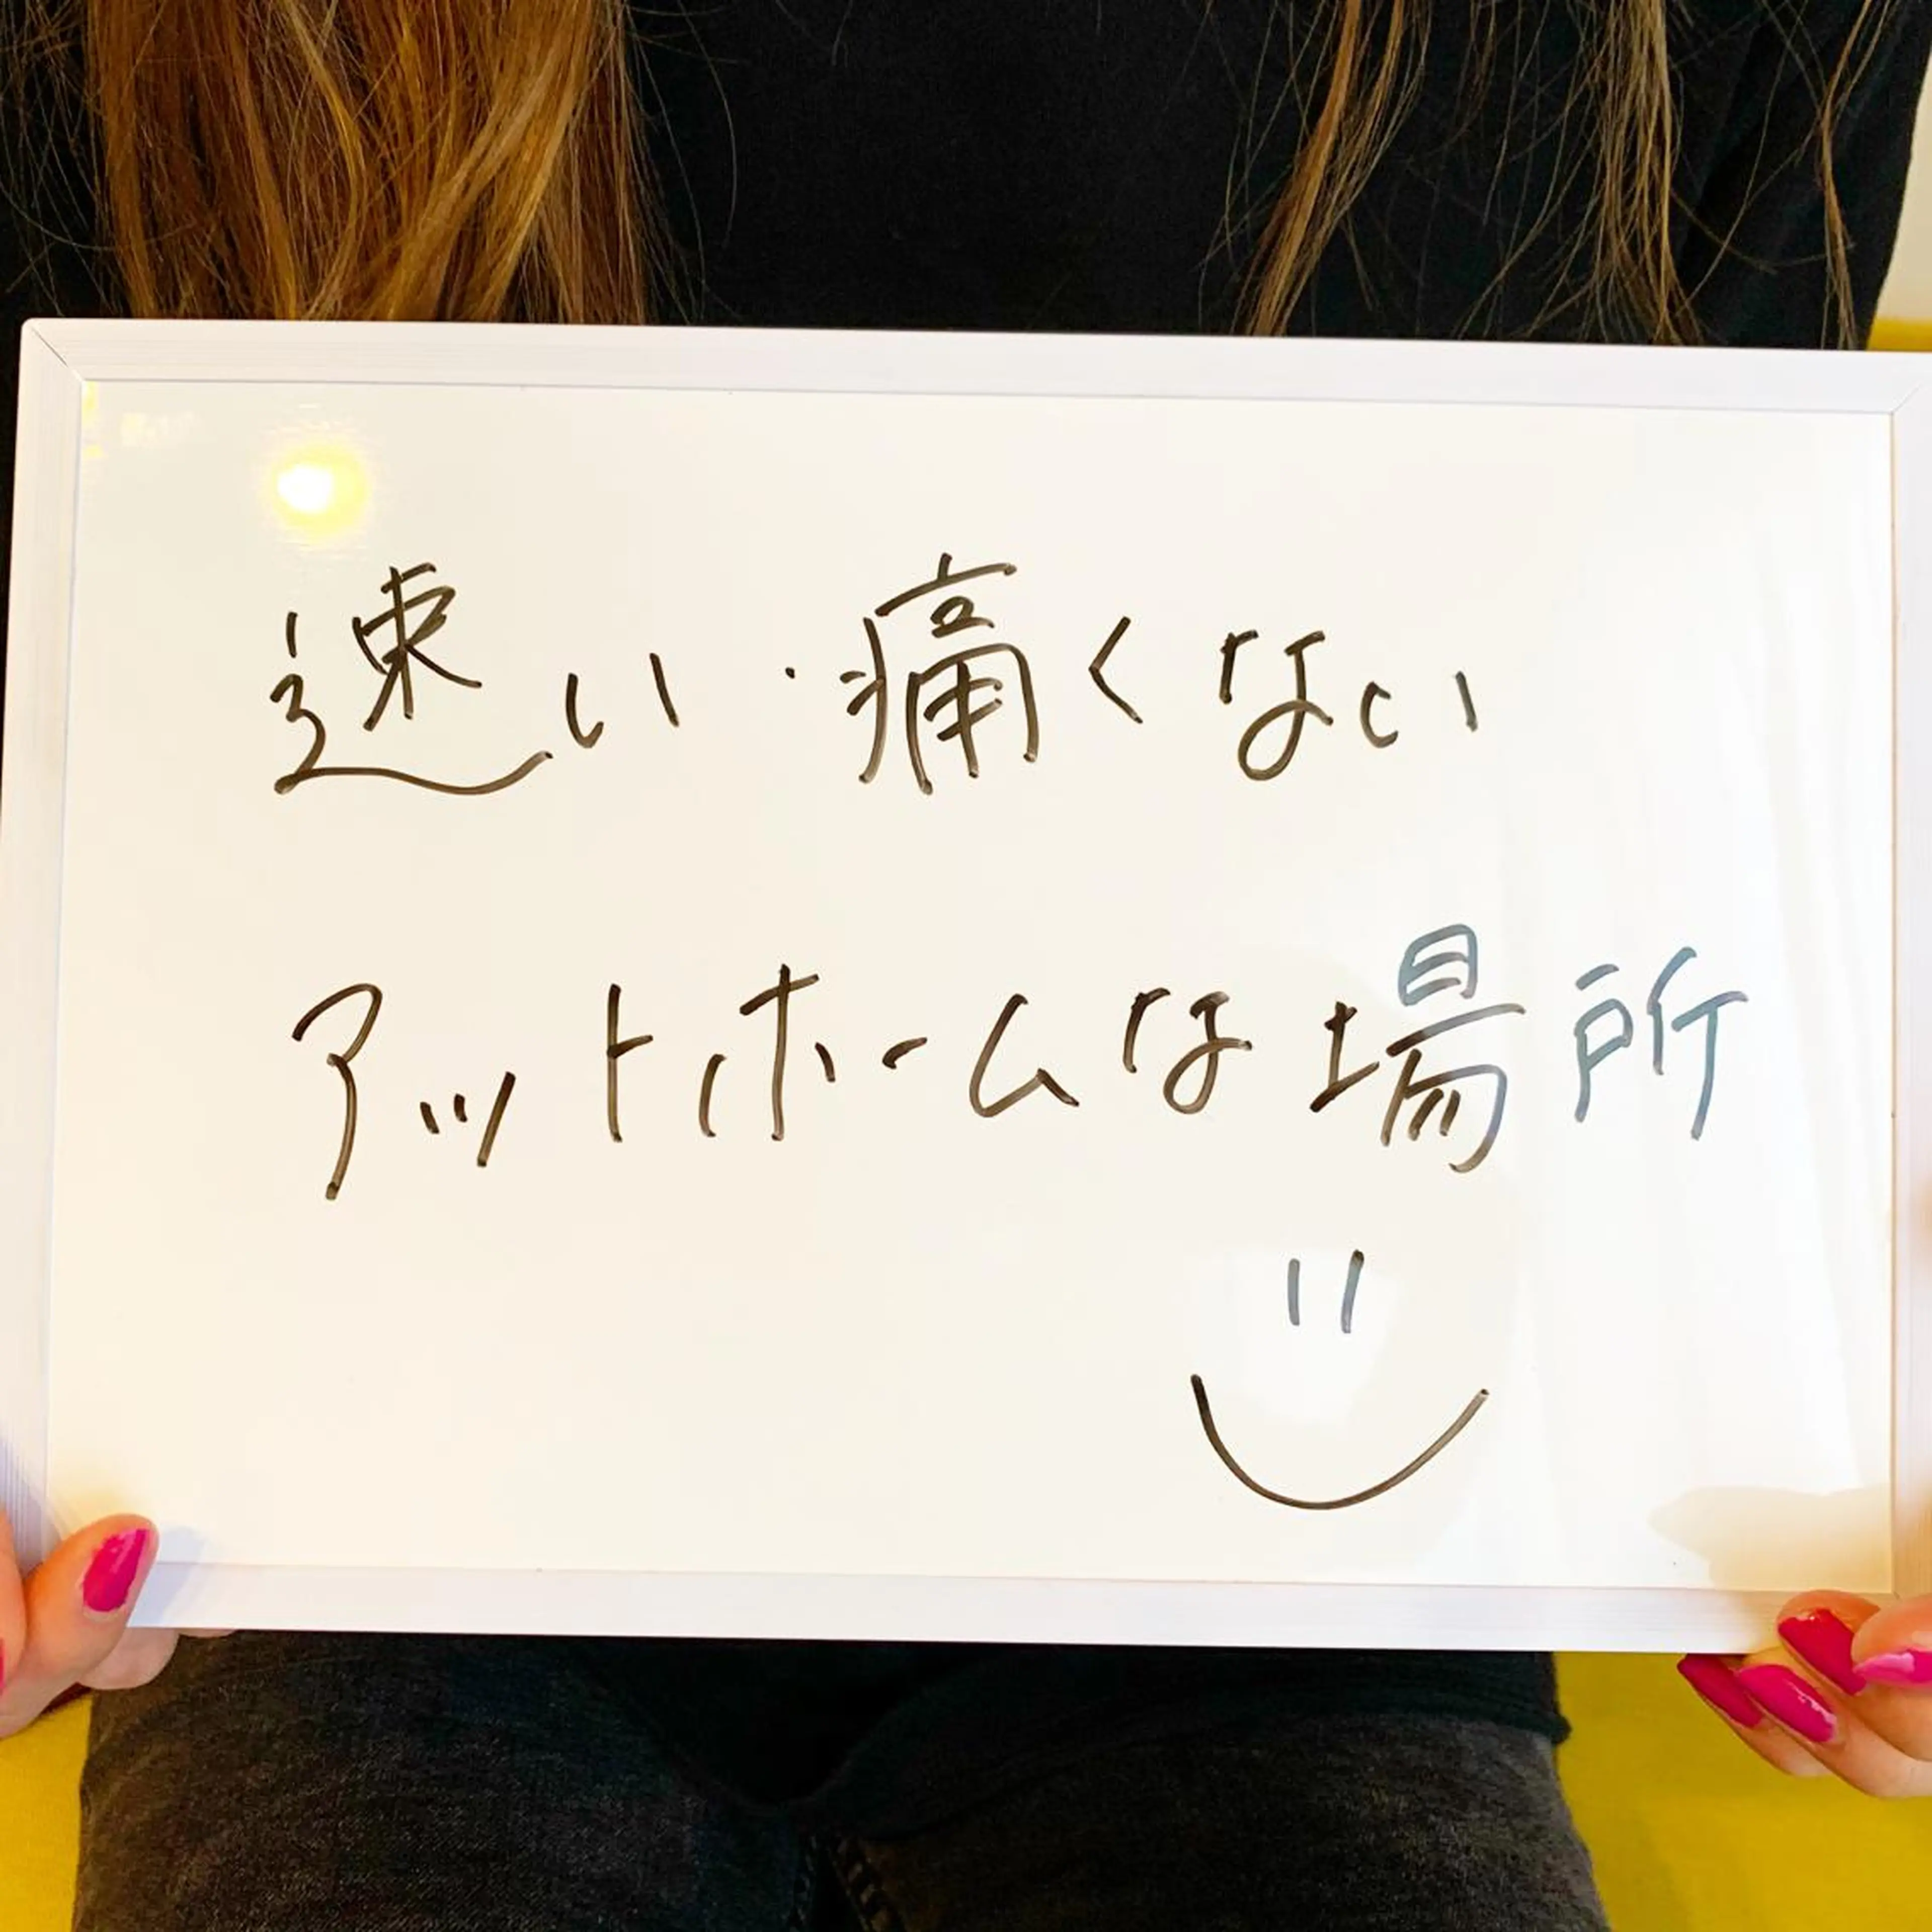 速い・痛くない
アットホームな場所